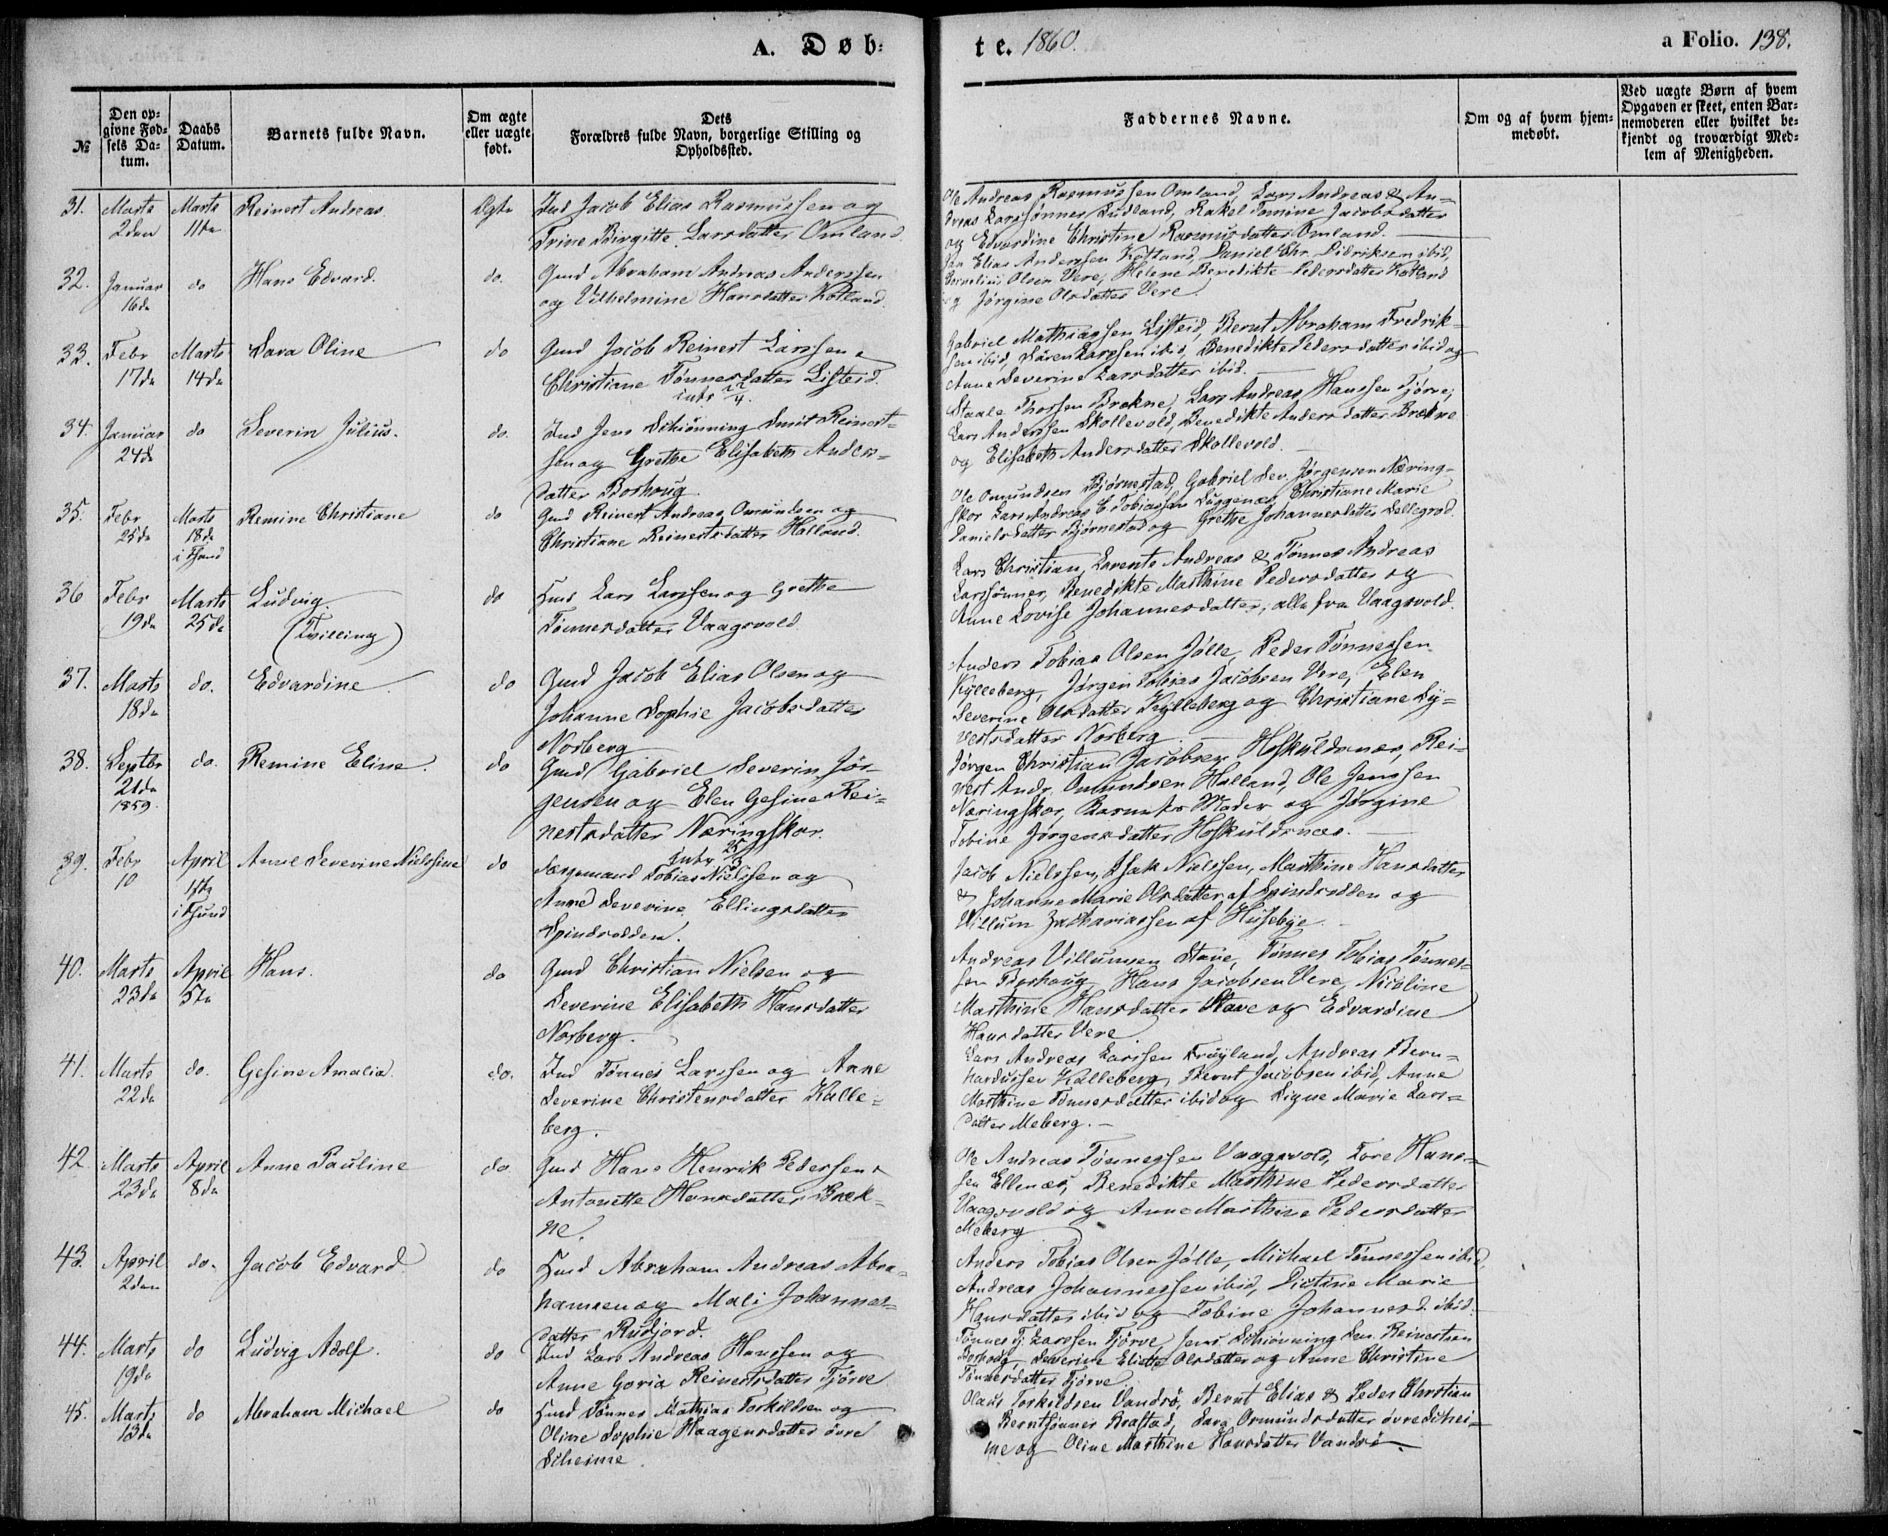 A. Døb-
te. 1860.
a Folio. 138.
№
Den op-
givne Fød-
sels Da-
tum.
Daabs
Datum.
Barnets fulde Navn.
Om ægte
eller uægte
født.
Dets
Forældres fulde Navn, borgerlige Stilling og
Opholdssted.
Faddernes Navne.
Om og af hvem hjem-
medøbt.
Ved uægte Børn af hvem
Opgaven er skeet, enten Bar-
nemoderen eller hvilket be-
kjendt og troværdigt Med-
lem af Menigheden.
31. Marts 2den Marts 11te Reinert Andreas Ægte
Ind Jacob Elias Rasmussen og
Trine Birgitte Larsdatter Omland.
Ole Andreas Rasmussen Omland, Lars Andreas & An-
dreas Larssønner Rudland, Rakel Tomine Jacobsdatter
og Edvardine Christine Rasmusdatter Omland.
32. Januar 16de do Hans Edvard. do.
Gmd Abraham Andreas Anderssen
og Vilhelmine Hansdatter Kotland.
Elias Anderssen Kotland, Daniel Chr. Didriksen ibid,
Cornelius Olsen Vere, Helene Benedikte Pedersdatter Kotland
og Jørgine Olsdatter Vere.
33. Febr 17de Marts 14de Sara Oline do
Gmd Jacob Reinert Larssen &
Christiane Tønnesdatter Listeid.
Gabriel Mathiassen Listeid, Bernt Abraham Fredrik-
sen ibid, Søren Larssen ibid, Benedikte Pedersdatter ibid og
Anne Severine Larsdatter ibid.
34. Januar 24de do Severin Julius. do.
intr 22/4.
Ind Jens Schiønning Smit Reinert-
sen og Grethe Elisabeth Anders-
datter Borhoug.
Staale Thorssen Brekne, Lars Andreas Hanssen Tjørve,
Lars Anderssen Skollevold, Benedikte Andersdatter Brekne
og Elisabeth Andersdatter Skollevold.
35. Febr 25de Marts 18de i Fsund Remine Christiane do
Gmd Reinert Andreas Omundsen og
Christiane Reinertsdatter Halland.
Ole Omundsen Bjørnestad, Gabriel Sev. Jørgensen Næring-
skor Lars Andreas & Tobiassen Christiane Marie
Danielsdatter Bjørnestad og Grethe Johannesdatter
36 Febr 19de Marts 25de Ludvig. (Tvilling) do
Hmd Lars Larssen og Grethe
Tønnesdatter Vaagsvold
Lars Christian, Larents Andreas & Tønnes Andreas
Larssønner, Benedikte Marthine Pedersdatter og
Anne Lovise Johannesdatter, alle fra Vaagsvold.
37. Marts 18de do. Edvardine do
Gmd Jacob Elias Olsen og
Johanne Sophie Jacobsdatter
Norberg
Anders Tobias Olsen Jølle, Peder Tønnessen
Kylleberg, Jørgen Tobias Jacobsen Vere, Elen
Severine Olsdatter Kylleberg og Christiane Sy-
vertsdatter Norberg.
38. Septbr 21de 1859 do. Remine Eline. do
Gmd Gabriel Severin Jør-
gensen og Elen Gesine Rei-
nertsdatter Næringskor.
Jørgen Christian Jacobsen Hoskuldsnæs, Rei-
nert Andr. Omundsen Halland, Ole Jenssen
Næringskor, Barnets Moder og Jørgine
Tobine Jørgensdatter Hoskuldsnæs.
39. Febr 10 April i Fsund Anne Severine Nielssine do
Intr 25/3
Tobias Nielssen og
Anne Severine Ellingsdatter
Spindsodden.
Jacob Nielssen, Isak Nielssen, Marthine Hansdatter
& Johanne Marie Olsdatter af Spindsodden og
Willum Zachariassen af Husebye.
40. Marts 23de April 5te Hans. do
Gmd Christian Nielsen og
Severine Elisabeth Hansdatter
Norberg.
Andreas Villumsen Stave, Tønnes Tobias Tønnes-
sen Borhoug, Hans Jacobsen Vere, Nicoline
Marthine Hansdatter Stave og Edvardine
Hansdatter Vere.
41. Marts 22de do. Gesine Amalia. do.
Ind Tønnes Larssen og Anne
Severine Christensdatter Kalle-
berg.
Lars Andreas Larssen Frøyland, Andreas Bern-
hardussen Kalleberg, Bernt Jacobsen ibid, Anne
Marthine Tønnesdatter ibid og Signe Marie Lars-
datter Meberg.
42. Marts 23de April 8de Anne Pauline do
Gmd Hans Henrik Pederssen &
Antonette Hansdatter Brek-
ne.
Ole Andreas Tønnessen Vaagsvold, Tore Hans-
sen Ellenæs, Benedikte Marthine Pedersdatter
Vaagsvold og Anne Marthine Pedersdatter
Meberg
43. April 2den do. Jacob Edvard. do
Hmd Abraham Andreas Abra-
hamsen og Mali Johannes-
datter Rudjord.
Anders Tobias Olsen Jølle, Michael Tønnessen ibid,
Andreas Johannessen ibid, Marie
Hansdatter ibid og Tobine Johannesd. ibid.
44. Marts 19de do Ludvig Adolf. do
Ind Lars Andreas Hanssen og
Anne Goria Reinertsdatter Tjørve
Tønnes Tj. Larssen Tjørve, Jens Schiønning Sm. Reinertsen
Borhoug, Severine Eliette Olsdatter og Anne Christine
Tønnesdatter Tjørve.
45. Marts 13de do Abraham Michael do
Hmd Tønnes Mathias Torkildsen og
Oline Sophie Haagensdatter øvre
Skeime.
Olaus Torkildsen Vandsø, Bernt Elias & Peder Christian
Berntsønner Brastad, Sara Omundsdatter øvre Skei-
me og Oline Marthine Hansdatter Vandsø.